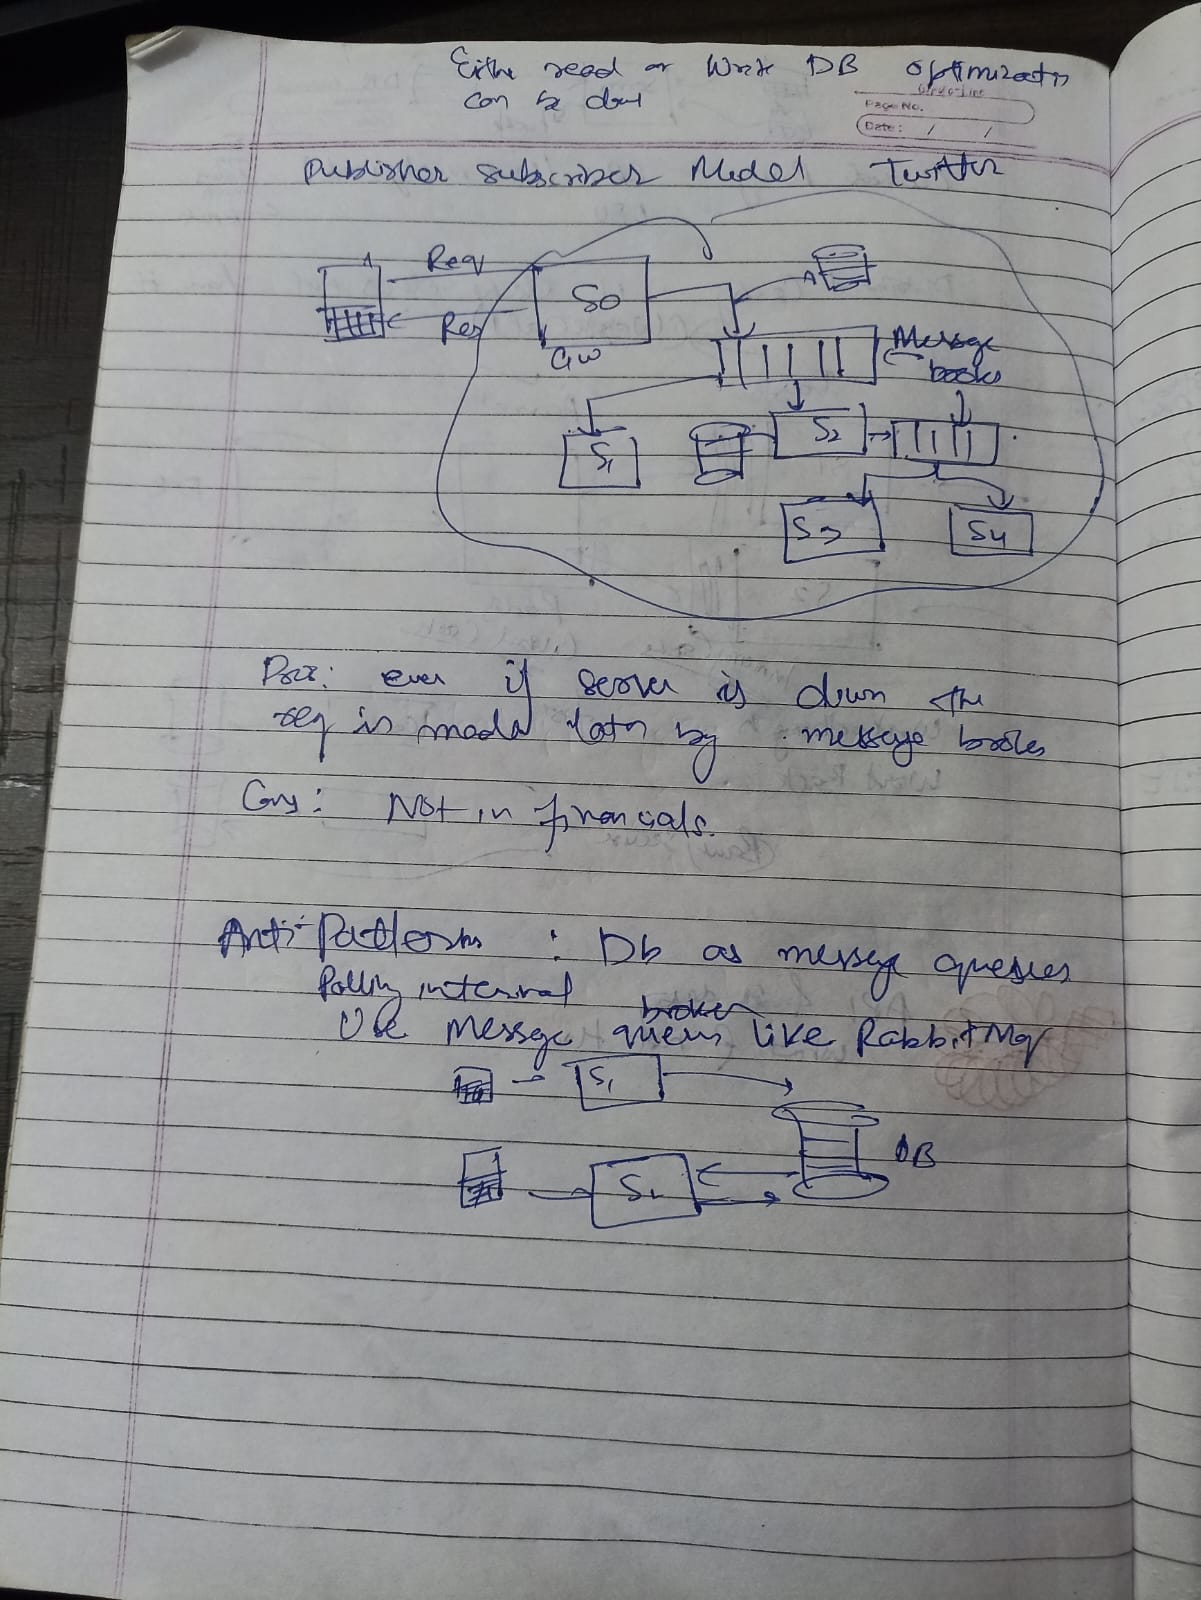 Eithe read or Write DB Optimizatn
can be done
Page No.
Date: / /
Publisher Subscriber Model Twitter
Req
Res
S0
GW
Message
books
S1
S2
S3
S4
Pros: even if server is down the
req is made later by message broker
Cons: Not in financials.
Anti-Patterns : Db as message queues
Polling interval
broker
Use Message queues like RabbitMq
S1
S2
DB